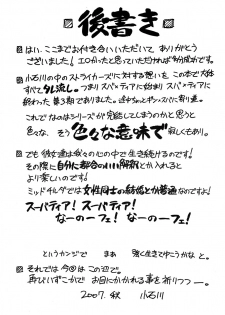 後書き
はい、ここまでお付き合いいただいて、ありがとう
ございました! エロかったと思っていただければ多分成功です。
小石川の中のストライカーズに対する想いを、この本で大体
すべてタレ流し。つまりスバ×ティアに始まりスバ×ティアに
終わった第3期でありました。途中ちょっとヴァイスに寄り道。
これで なのはシリーズが完結してしまうのかと思うと
色々な、そう色々な意味で寂しくもあり。
でも彼女達は我々の心の中で生き続けるのです!
その際に自分に都合のいい解釈とか入れると
より楽しいのです!
ミッドチルダでは女性同士の結婚とか普通なのですよ!
スーバティア! スーバティア!
なーのーフェ! なーのーフェ!
というカンジで まぁ 強く生きてゆこうかなと。
それでは今回はこの辺で。
再びいずこかでお目にかかれる事を祈りつつ―。
2007. 秋 小石川